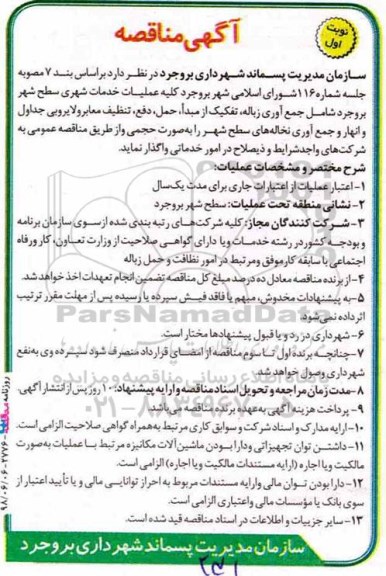 آگهی مناقصه
نوبت
اول
سازمان مدیریت پسماند شهرداری بروجرد در نظر دارد براساس بند ۷ مصوبه
جلسه شماره ۱۱۶ شورای اسلامی شهر بروجرد کلیه عملیات خدمات شهری سطح شهر
بروجرد شامل جمع آوری زباله، تفکیک از مبدأ، حمل، دفع، تنظیف معابر ولایروبی جداول
و انهار و جمع آوری نخاله‌های سطح شهر را به‌صورت حجمی و از طریق مناقصه عمومی به
شرکت‌های واجد شرایط و ذیصلاح در امور خدماتی واگذار نماید.
شرح مختصر و مشخصات عملیات:
۱- اعتبار عملیات از اعتبارات جاری برای مدت یک‌سال
۲- نشانی منطقه تحت عملیات: سطح شهر بروجرد
۳- شرکت کنندگان مجاز: کلیه شرکت‌های رتبه بندی شده از سوی سازمان برنامه
و بودجه کشور در رشته خدمات و یا دارای گواهی صلاحیت از وزارت تعاون، کار و رفاه
اجتماعی با سابقه کار موفق و مرتبط در امور نظافت و حمل زباله
۴- از برنده مناقصه معادل ده درصد مبلغ کل مناقصه تضمین انجام تعهدات اخذ خواهد شد.
۵- به پیشنهادات مخدوش، مبهم یا فاقد فیش سپرده یا رسیده پس از مهلت مقرر ترتیب
اثر داده نمی‌شود.
۶- شهرداری در رد و یا قبول پیشنهادها مختار است.
۷- چنانچه برنده اول تا سوم مناقصه از امضای قرارداد منصرف شود سپرده وی به‌نفع
شهرداری وصول خواهد شد.
۸- مدت زمان مراجعه و تحویل اسناد مناقصه و ارایه پیشنهاد: ۱۰ روز پس از انتشار آگهی.
۹- پرداخت هزینه آگهی به‌عهده برنده مناقصه می‌باشد.
۱۰- ارایه مدارک و اسناد شرکت و سوابق کاری مرتبط به‌همراه گواهی صلاحیت الزامی است.
۱۱- داشتن توان تجهیزاتی و دارا بودن ماشین آلات مکانیزه مرتبط با عملیات به‌صورت
مالکیت و یا اجاره (ارایه مستندات مالکیت و یا اجاره) الزامی است.
۱۲- دارا بودن توان مالی و ارایه مستندات مربوط به احراز توانایی مالی و یا تأیید اعتبار از
سوی بانک یا مؤسسات مالی و اعتباری الزامی است.
۱۳- سایر جزییات و اطلاعات در اسناد مناقصه قید شده است.
سازمان مدیریت پسماند شهرداری بروجرد
ParsNamadData
۰۲۱-۸۸۳۴۹۶۷۰
۹۸/۰۶/۰۶-۲۷۷۶